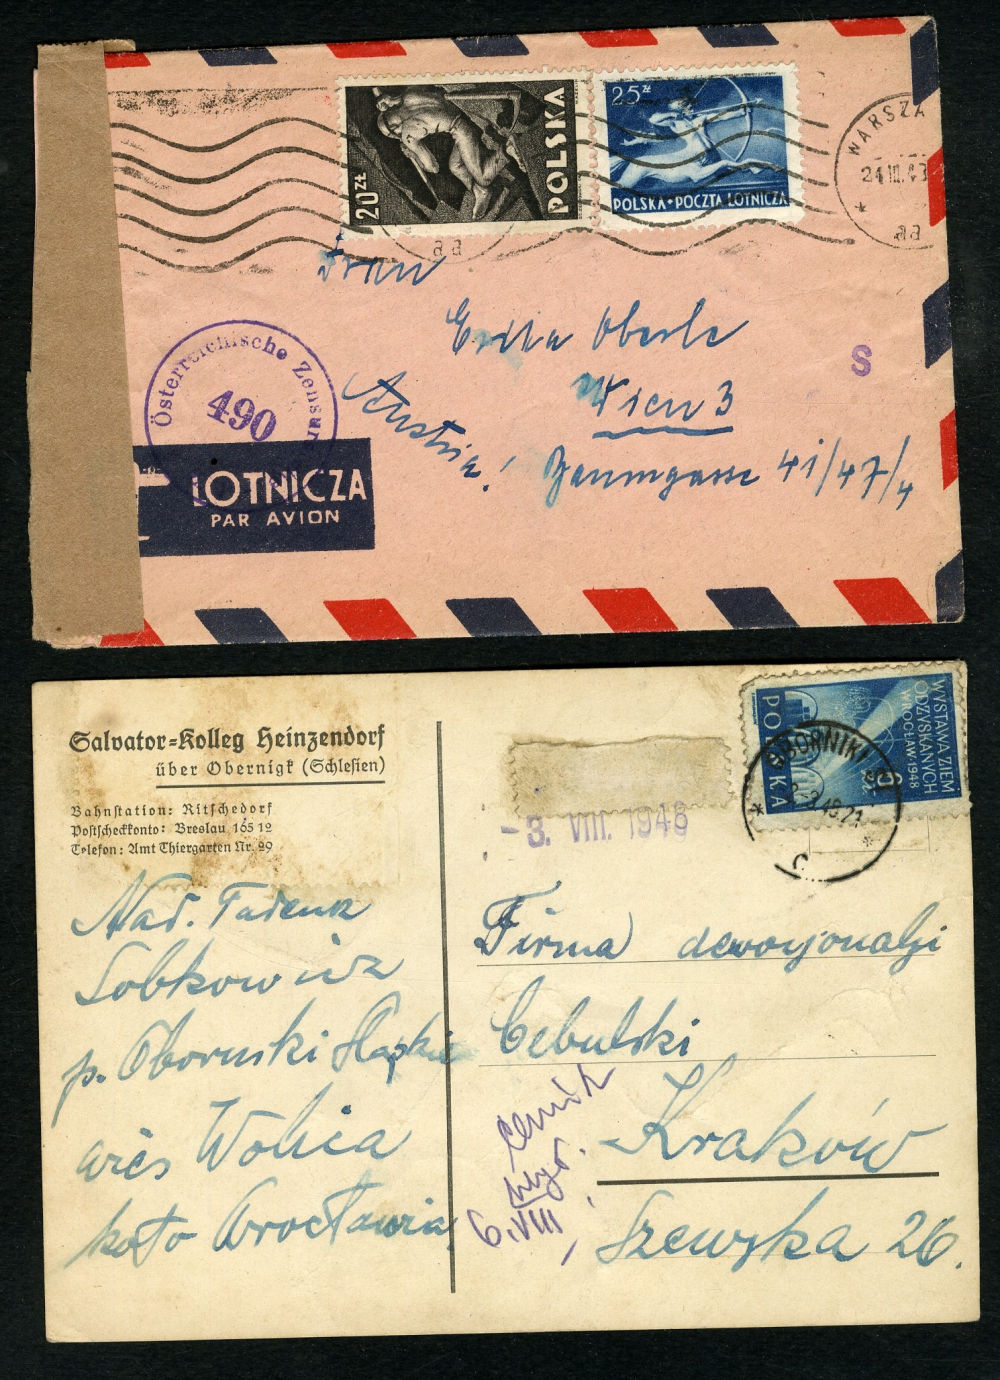 20 ZŁ
POLSKA
25 zł
POLSKA + POCZTA LOTNICZA
WARSZA
24 III.
aa
aa
Frau
Erika Oberle
Wien 3
Austria!
41/47/4
S
Österreichische Zensur
490
LOTNICZA
PAR AVION
Salvator-Kolleg Heinzendorf
über Obernigk (Schlesien)
Bahnstation: Ritschedorf
Postscheckkonto: Breslau 165 12
Telefon: Amt Thiergarten Nr. 29
WYSTAWA ZIEM
ODZYSKANYCH
WROCŁAW·1948
POLSKA
OBORNIKI ŚL
- 3. VIII. 1948
Nad. Tadeusz
Sobkowicz
p. Oborniki Śląskie
wieś Wolica
koło Wrocławia
Firma dewocjonalji
Cebulski
Kraków
Szewska 26.
Cennik
wysł.
6.VIII